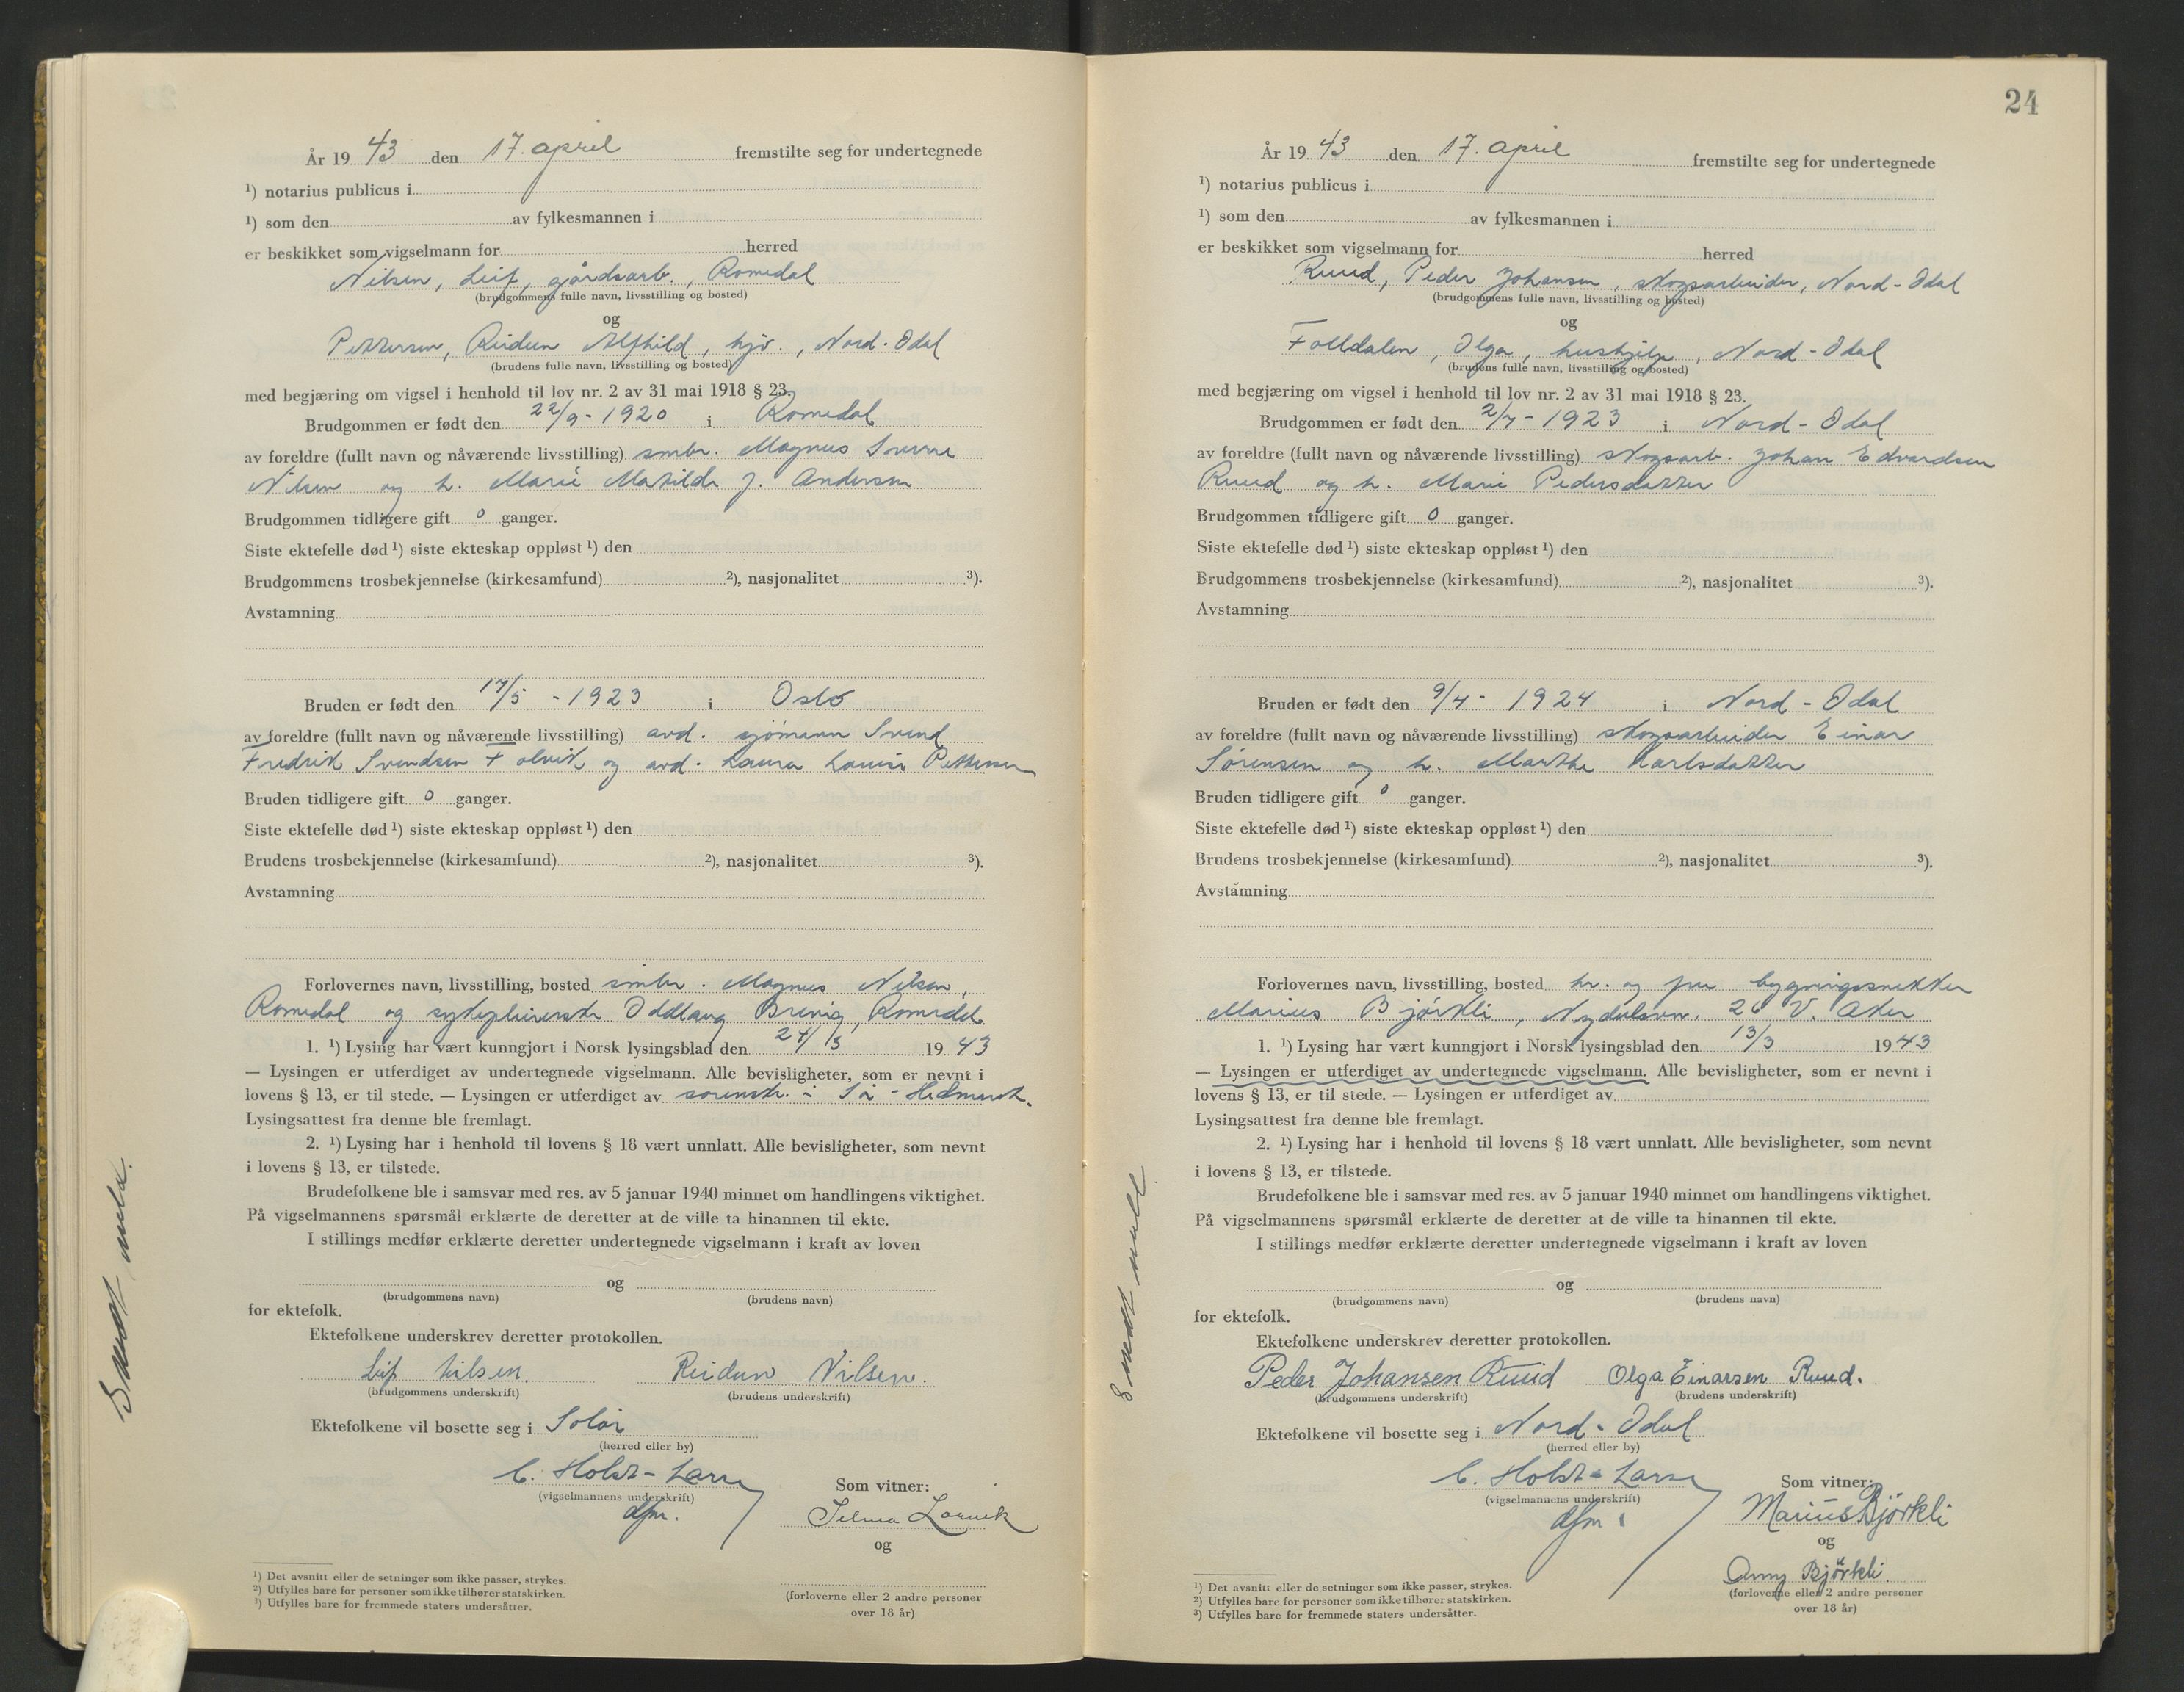 År 19 43 den 17. april fremstilte seg for undertegnede
¹) notarius publicus i
¹) som den av fylkesmannen i
er beskikket som vigselmann for herred
Nilsen, Leif, gårdsarb., Romedal
(brudgommens fulle navn, livsstilling og bosted)
og
Pettersen, Reidun Alfhild, hjv., Nord-Odal
(brudens fulle navn, livsstilling og bosted)
med begjæring om vigsel i henhold til lov nr. 2 av 31 mai 1918 § 23.
Brudgommen er født den 22/9 - 1920 i Romedal
av foreldre (fullt navn og nåværende livsstilling) smbr. Magnus Sverre
Nilsen og h. Marie Matilde J. Andersen
Brudgommen tidligere gift 0 ganger.
Siste ektefelle død ¹) siste ekteskap oppløst ¹) den
Brudgommens trosbekjennelse (kirkesamfund) ²), nasjonalitet ³).
Avstamning
Bruden er født den 17/5 - 1923 i Oslo
av foreldre (fullt navn og nåværende livsstilling) avd. sjømann Svend
Fredrik Svendsen Folvik og avd. Laura Louise Pettersen
Bruden tidligere gift 0 ganger.
Siste ektefelle død ¹) siste ekteskap oppløst ¹) den
Brudens trosbekjennelse (kirkesamfund) ²), nasjonalitet ³).
Avstamning
Forlovernes navn, livsstilling, bosted smbr. Magnus Nilsen,
Romedal og sykepleierske Oddlaug Brenig, Romedal.
1. ¹) Lysing har vært kunngjort i Norsk lysingsblad den 24/3 19 43
— Lysingen er utferdiget av undertegnede vigselmann. Alle bevisligheter, som er nevnt i
lovens § 13, er til stede. — Lysingen er utferdiget av sorenskr. i Sø-Hedmark.
Lysingsattest fra denne ble fremlagt.
2. ¹) Lysing har i henhold til lovens § 18 vært unnlatt. Alle bevisligheter, som nevnt
i lovens § 13, er tilstede.
Brudefolkene ble i samsvar med res. av 5 januar 1940 minnet om handlingens viktighet.
På vigselmannens spørsmål erklærte de deretter at de ville ta hinannen til ekte.
I stillings medfør erklærte deretter undertegnede vigselmann i kraft av loven
og
(brudgommens navn) (brudens navn)
for ektefolk.
Ektefolkene underskrev deretter protokollen.
Leif Nilsen. Reidun Nilsen.
(brudgommens underskrift) (brudens underskrift)
Ektefolkene vil bosette seg i Solør
(herred eller by)
C. Holst-Larsen
(vigselmannens underskrift)
dfm.
Som vitner:
Selma
og
(forloverne eller 2 andre personer
over 18 år)
¹) Det avsnitt eller de setninger som ikke passer, strykes.
²) Utfylles bare for personer som ikke tilhører statskirken.
³) Utfylles bare for fremmede staters undersåtter.
Sendt
24
År 19 43 den 17. april fremstilte seg for undertegnede
¹) notarius publicus i
¹) som den av fylkesmannen i
er beskikket som vigselmann for herred
Ruud, Peder Johansen, skogsarbeider, Nord-Odal
(brudgommens fulle navn, livsstilling og bosted)
og
Folldalen, Olga, hushjelp, Nord-Odal
(brudens fulle navn, livsstilling og bosted)
med begjæring om vigsel i henhold til lov nr. 2 av 31 mai 1918 § 23.
Brudgommen er født den 2/7 - 1923 i Nord-Odal
av foreldre (fullt navn og nåværende livsstilling) skogsarb. Johan Edvardsen
Ruud og h. Marie Pedersdatter
Brudgommen tidligere gift 0 ganger.
Siste ektefelle død ¹) siste ekteskap oppløst ¹) den
Brudgommens trosbekjennelse (kirkesamfund) ²), nasjonalitet ³).
Avstamning
Bruden er født den 9/4 - 1924 i Nord-Odal
av foreldre (fullt navn og nåværende livsstilling) skogsarbeider Einar
Sørensen og h. Marthe Karlsdatter
Bruden tidligere gift 0 ganger.
Siste ektefelle død ¹) siste ekteskap oppløst ¹) den
Brudens trosbekjennelse (kirkesamfund) ²), nasjonalitet ³).
Avstamning
Forlovernes navn, livsstilling, bosted hr. og fru bygningssnekker
Marius Björkli, Nydalsvn. 26 V. Aker
1. ¹) Lysing har vært kunngjort i Norsk lysingsblad den 13/3 19 43
— Lysingen er utferdiget av undertegnede vigselmann. Alle bevisligheter, som er nevnt i
lovens § 13, er til stede. — Lysingen er utferdiget av
Lysingsattest fra denne ble fremlagt.
2. ¹) Lysing har i henhold til lovens § 18 vært unnlatt. Alle bevisligheter, som nevnt
i lovens § 13, er tilstede.
Brudefolkene ble i samsvar med res. av 5 januar 1940 minnet om handlingens viktighet.
På vigselmannens spørsmål erklærte de deretter at de ville ta hinannen til ekte.
I stillings medfør erklærte deretter undertegnede vigselmann i kraft av loven
og
(brudgommens navn) (brudens navn)
for ektefolk.
Ektefolkene underskrev deretter protokollen.
Peder Johansen Ruud Olga Einarsen Ruud.
(brudgommens underskrift) (brudens underskrift)
Ektefolkene vil bosette seg i Nord-Odal
(herred eller by)
C. Holst-Larsen
(vigselmannens underskrift)
dfm.
Som vitner:
Marius Björkli
og
Anny Björkli.
(forloverne eller 2 andre personer
over 18 år)
¹) Det avsnitt eller de setninger som ikke passer, strykes.
²) Utfylles bare for personer som ikke tilhører statskirken.
³) Utfylles bare for fremmede staters undersåtter.
Sendt